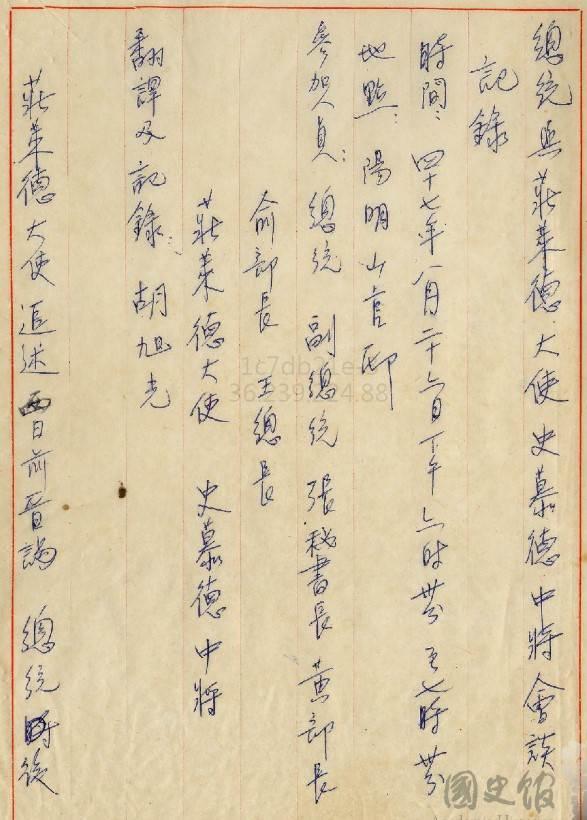 總統與莊萊德大使史慕德中將會談
記錄
時間：四十七年八月二十六日下午六時廿分至七時廿分
地點：陽明山官邸
參加員：總統 副總統 張秘書長 黃部長
俞部長 王總長
莊萊德大使 史慕德中將
翻譯及記錄：胡旭光
莊萊德大使追述 日前晉謁 總統 後
國史館